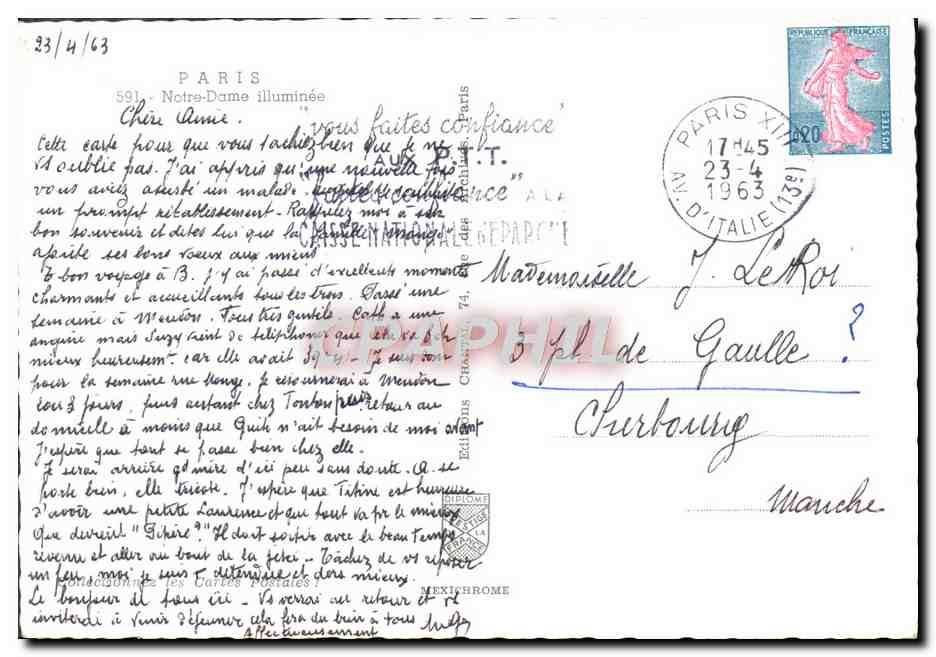 23/4/63
PARIS
591 - Notre-Dame illuminée
Chère Annie.
Cette carte pour que vous sachiez bien que je ne
vs oublie pas. J'ai appris qu'une nouvelle fois
vous aviez assisté un malade.
un prompt rétablissement. Rappelez moi à son
bon souvenir et dites lui que la famille
ses bons vœux aux miens
bon voyage à B. J'y ai passé d'excellents moments
charmants et accueillants tous les trois. Passé une
semaine à Meudon. Tous très gentils. Cath a une
angine mais Suzy vient de téléphoner que
mieux heureusement car elle avait 39
pour la semaine rue Monge. Je retournerai à Meudon
3 jours, puis autant chez Tonton puis retour au
domicile à moins que Guih n'ait besoin de moi avant
J'espère que tout se passe bien chez elle.
Je serai arrière gd mère d'ici peu sans doute. A. se
porte bien, elle tricote. J'espère que Titine est heureuse
d'avoir une petite Laurence et que tout va pr le mieux
Que devient "Pépère"? Il doit sortir avec le beau temps
revenu et aller au bout de la jetée. Tâchez de vs reposer
un peu, moi je suis détendue et dors mieux.
Le bonjour de tous ici. Vs verrai au retour et vs
inviterai à venir déjeuner cela fera du bien à tous
Affectueusement
Collectionnez les Cartes Postales!
Editions CHANTAL, 74, rue des Archives, Paris
"vous faites confiance
AUX P.T.T.
faites confiance" A LA
CAISSE NATIONALE D'EPARGNE
PARIS XIII
17H45
23-4
1963
AV. D'ITALIE (13e)
REPUBLIQUE FRANÇAISE
0,20
POSTES
Mademoiselle J. LeRoi
3 pl. de Gaulle ?
Cherbourg
Manche
DIPLOME
PRESTIGE
DE LA
FRANCE
MEXICHROME
CPAPHIL